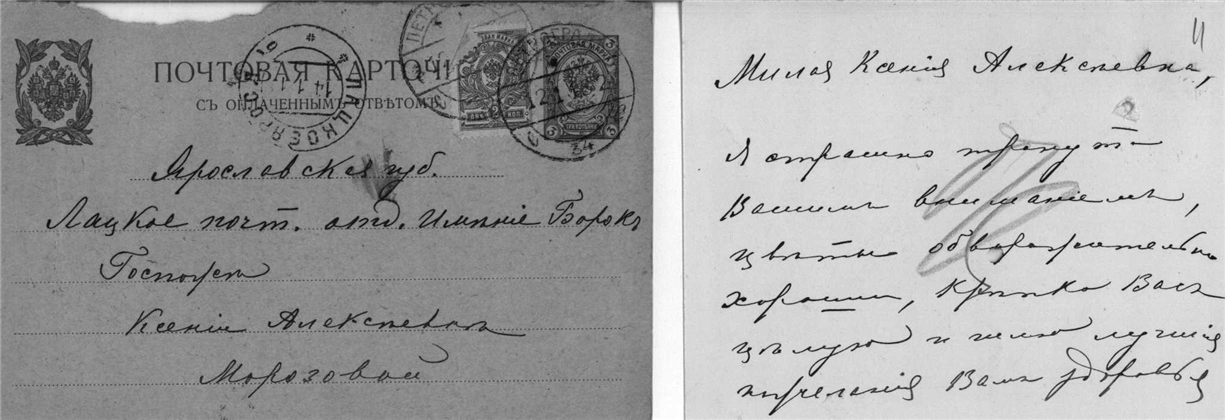 ПОЧТОВАЯ КАРТОЧ
СЪ ОПЛАЧЕННЫМЪ ОТВѢТОМЪ
Ярославская губ.
Лацкое почт. отд. Имѣніе Борокъ
Госпожѣ
Ксеніи Алексѣевнѣ
Морозовой
11
Милая Ксенія Алексѣевна,
Я страшно тронутъ
Вашимъ вниманіемъ,
цвѣты обворожительно
хороши, крѣпко Васъ
цѣлую и шлю лучшія
пожеланія Вамъ здоровья